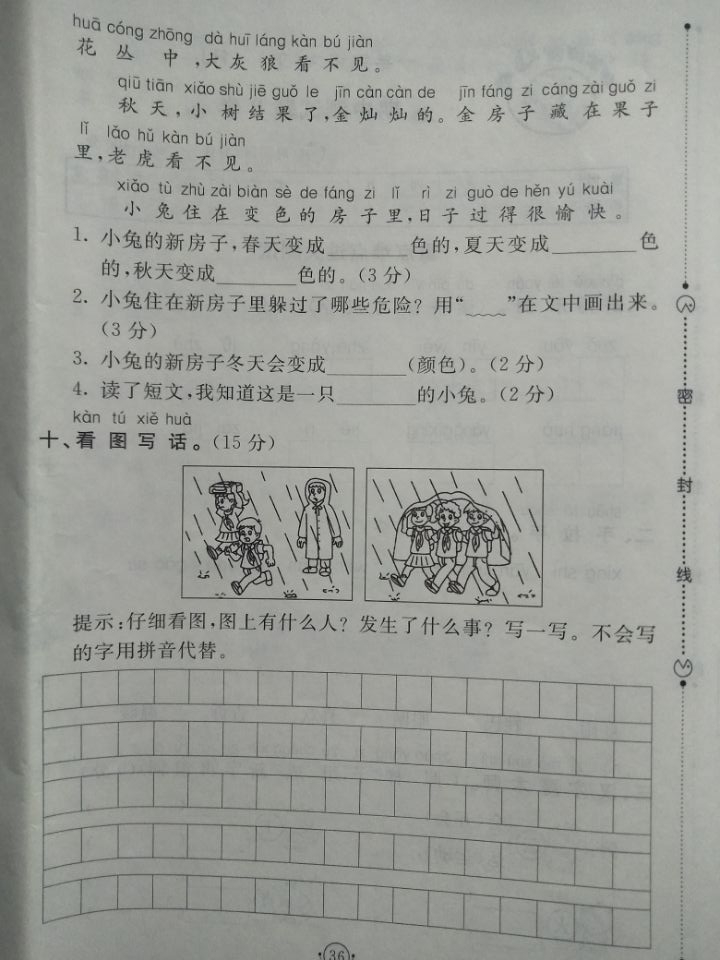 huā cóng zhōng dà huī láng kàn bú jiàn
花丛中,大灰狼看不见。
qiū tiān xiǎo shù jiē guǒ le jīn càn càn de jīn fáng zi cáng zài guǒ zi
秋天,小树结果了,金灿灿的。金房子藏在果子
lǐ lǎo hǔ kàn bú jiàn
里,老虎看不见。
xiǎo tù zhù zài biàn sè de fáng zi lǐ rì zi guò de hěn yú kuài
小兔住在变色的房子里,日子过得很愉快。
1. 小兔的新房子,春天变成______色的,夏天变成______色
的,秋天变成______色的。(3分)
2. 小兔住在新房子里躲过了哪些危险?用“﹏﹏”在文中画出来。
(3分)
3. 小兔的新房子冬天会变成______(颜色)。(2分)
4. 读了短文,我知道这是一只______的小兔。(2分)
kàn tú xiě huà
十、看图写话。(15分)
提示:仔细看图,图上有什么人?发生了什么事?写一写。不会写
的字用拼音代替。
密
封
线
·36·